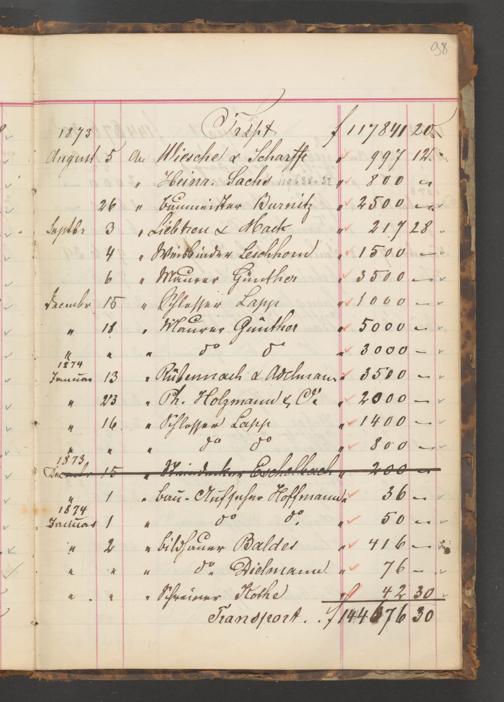 98
1873 Trspt f 117841 20
August 5 An Wiesche & Scharffe " 997 12
" Heinr. Sachs " 800 —
26 " Baumeister Burnitz " 2500 —
Septbr 3 " Liebtron & Mack " 217 28
4 " Weisbinder Leschhorn " 1500 —
6 " Maurer Günther " 3500 —
Decembr 15 " Schlosser Lapp " 1000 —
" 18 " Maurer Günther " 5000 —
" " " do do " 3000 —
1874
Januar 13 " & Adelmann " 3500 —
" 23 " Ph. Holzmann & Cie. " 2000 —
" 16 " Schlosser Lapp " 1400 —
" " do do " 800 —
1873
Decembr 15 " Eschelbach " 200 —
" 1 " Bau-Aufseher Hoffmann " 36 —
1874
Januar 1 " do do " 50 —
" 2 " Bildhauer Baldes " 416 —
" " " do. Dielmann " 76 —
" " " Schreiner Kothe " 42 30
Transport . . f 144676 30